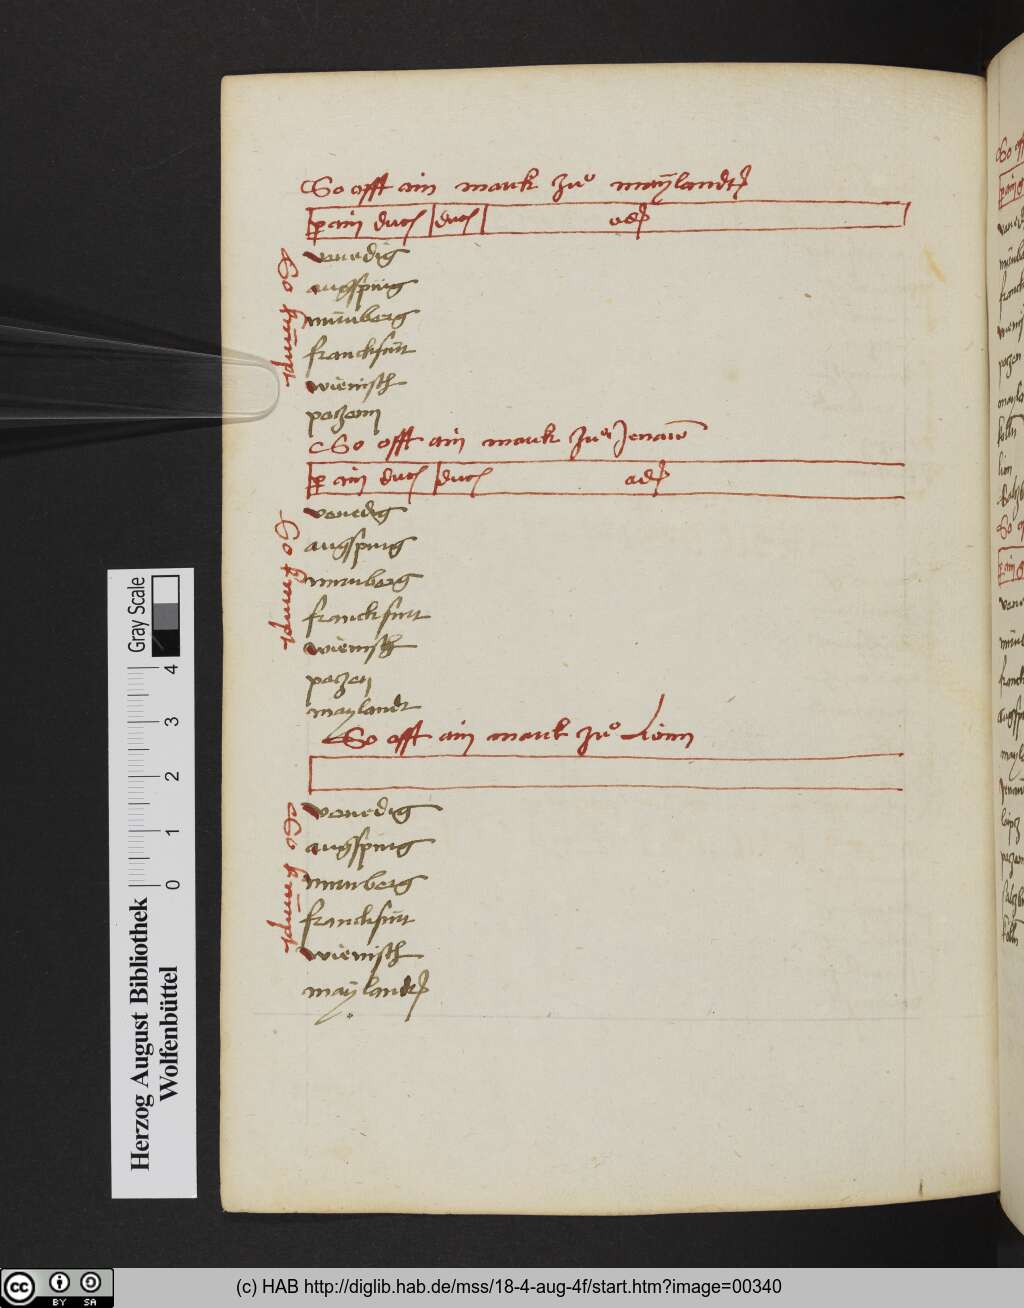 So offt ain marck zuͦ maylandt
ꝑ ain duc duc od
So kumpt
venedig
augspurg
nürnberg
franckfurt
wienisch
poczenn
So offt ain marck zuͦ Jenaw
ꝑ ain duc duc od
So kumpt
venedig
augspurg
nurnberg
franckfurt
wienisch
poczen
maylandt
So offt ain marck zuͦ Lionn
So kumpt
venedig
augspurg
nurnberg
franckfurt
wienisch
maylandt
Gray Scale
0 1 2 3 4
Herzog August Bibliothek
Wolfenbüttel
cc BY SA
(c) HAB http://diglib.hab.de/mss/18-4-aug-4f/start.htm?image=00340